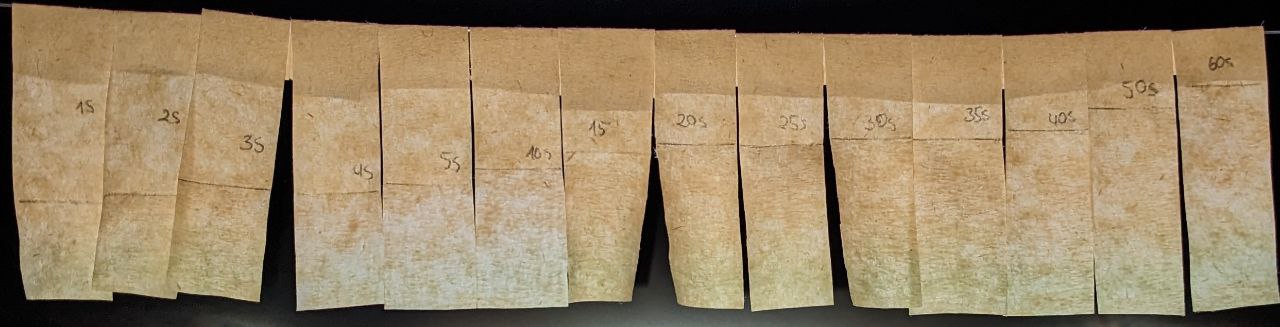 1s
2s
3s
4s
5s
10s
15
20s
25s
30s
35s
40s
50s
60s